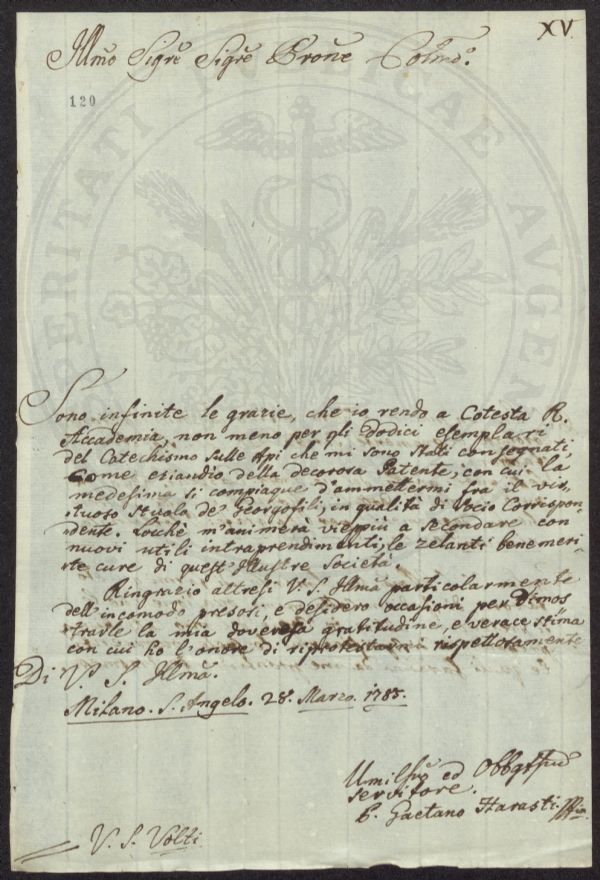 XV.
Illmo Sigre Sigre Prone Colmo.
120
PERITATI PUBLICAE AUGEN
Sono infinite le grazie, che io rendo a Cotesta R.
Accademia, non meno per gli dodici esemplari
del Catechismo sulle Api che mi sono stati consegnati,
come eziandio della decorosa Patente, con cui la
medesima si compiaque d'ammettermi fra il vir,
tuoso stuolo de' Georgofili, in qualità di Socio Corrispon
dente. Locchè m'animerà vieppiù a secondare con
nuovi utili intraprendimenti, le zelanti benemeri,
te cure di quest'Illustre Società.
Ringrazio altresì V. S. Illma particolarmente
dell'incomodo presosi, e desidero occasioni per Dimos
trarle la mia doverosa gratitudine, e verace stima
con cui ho l'onore di riprotestarmi rispettosamente
Di V. S. Illma.
Milano. S. Angelo. 28. Marzo. 1785.
Umilmo ed Obbgmo
servitore.
P. Gaetano Harasti
V. S. Volti